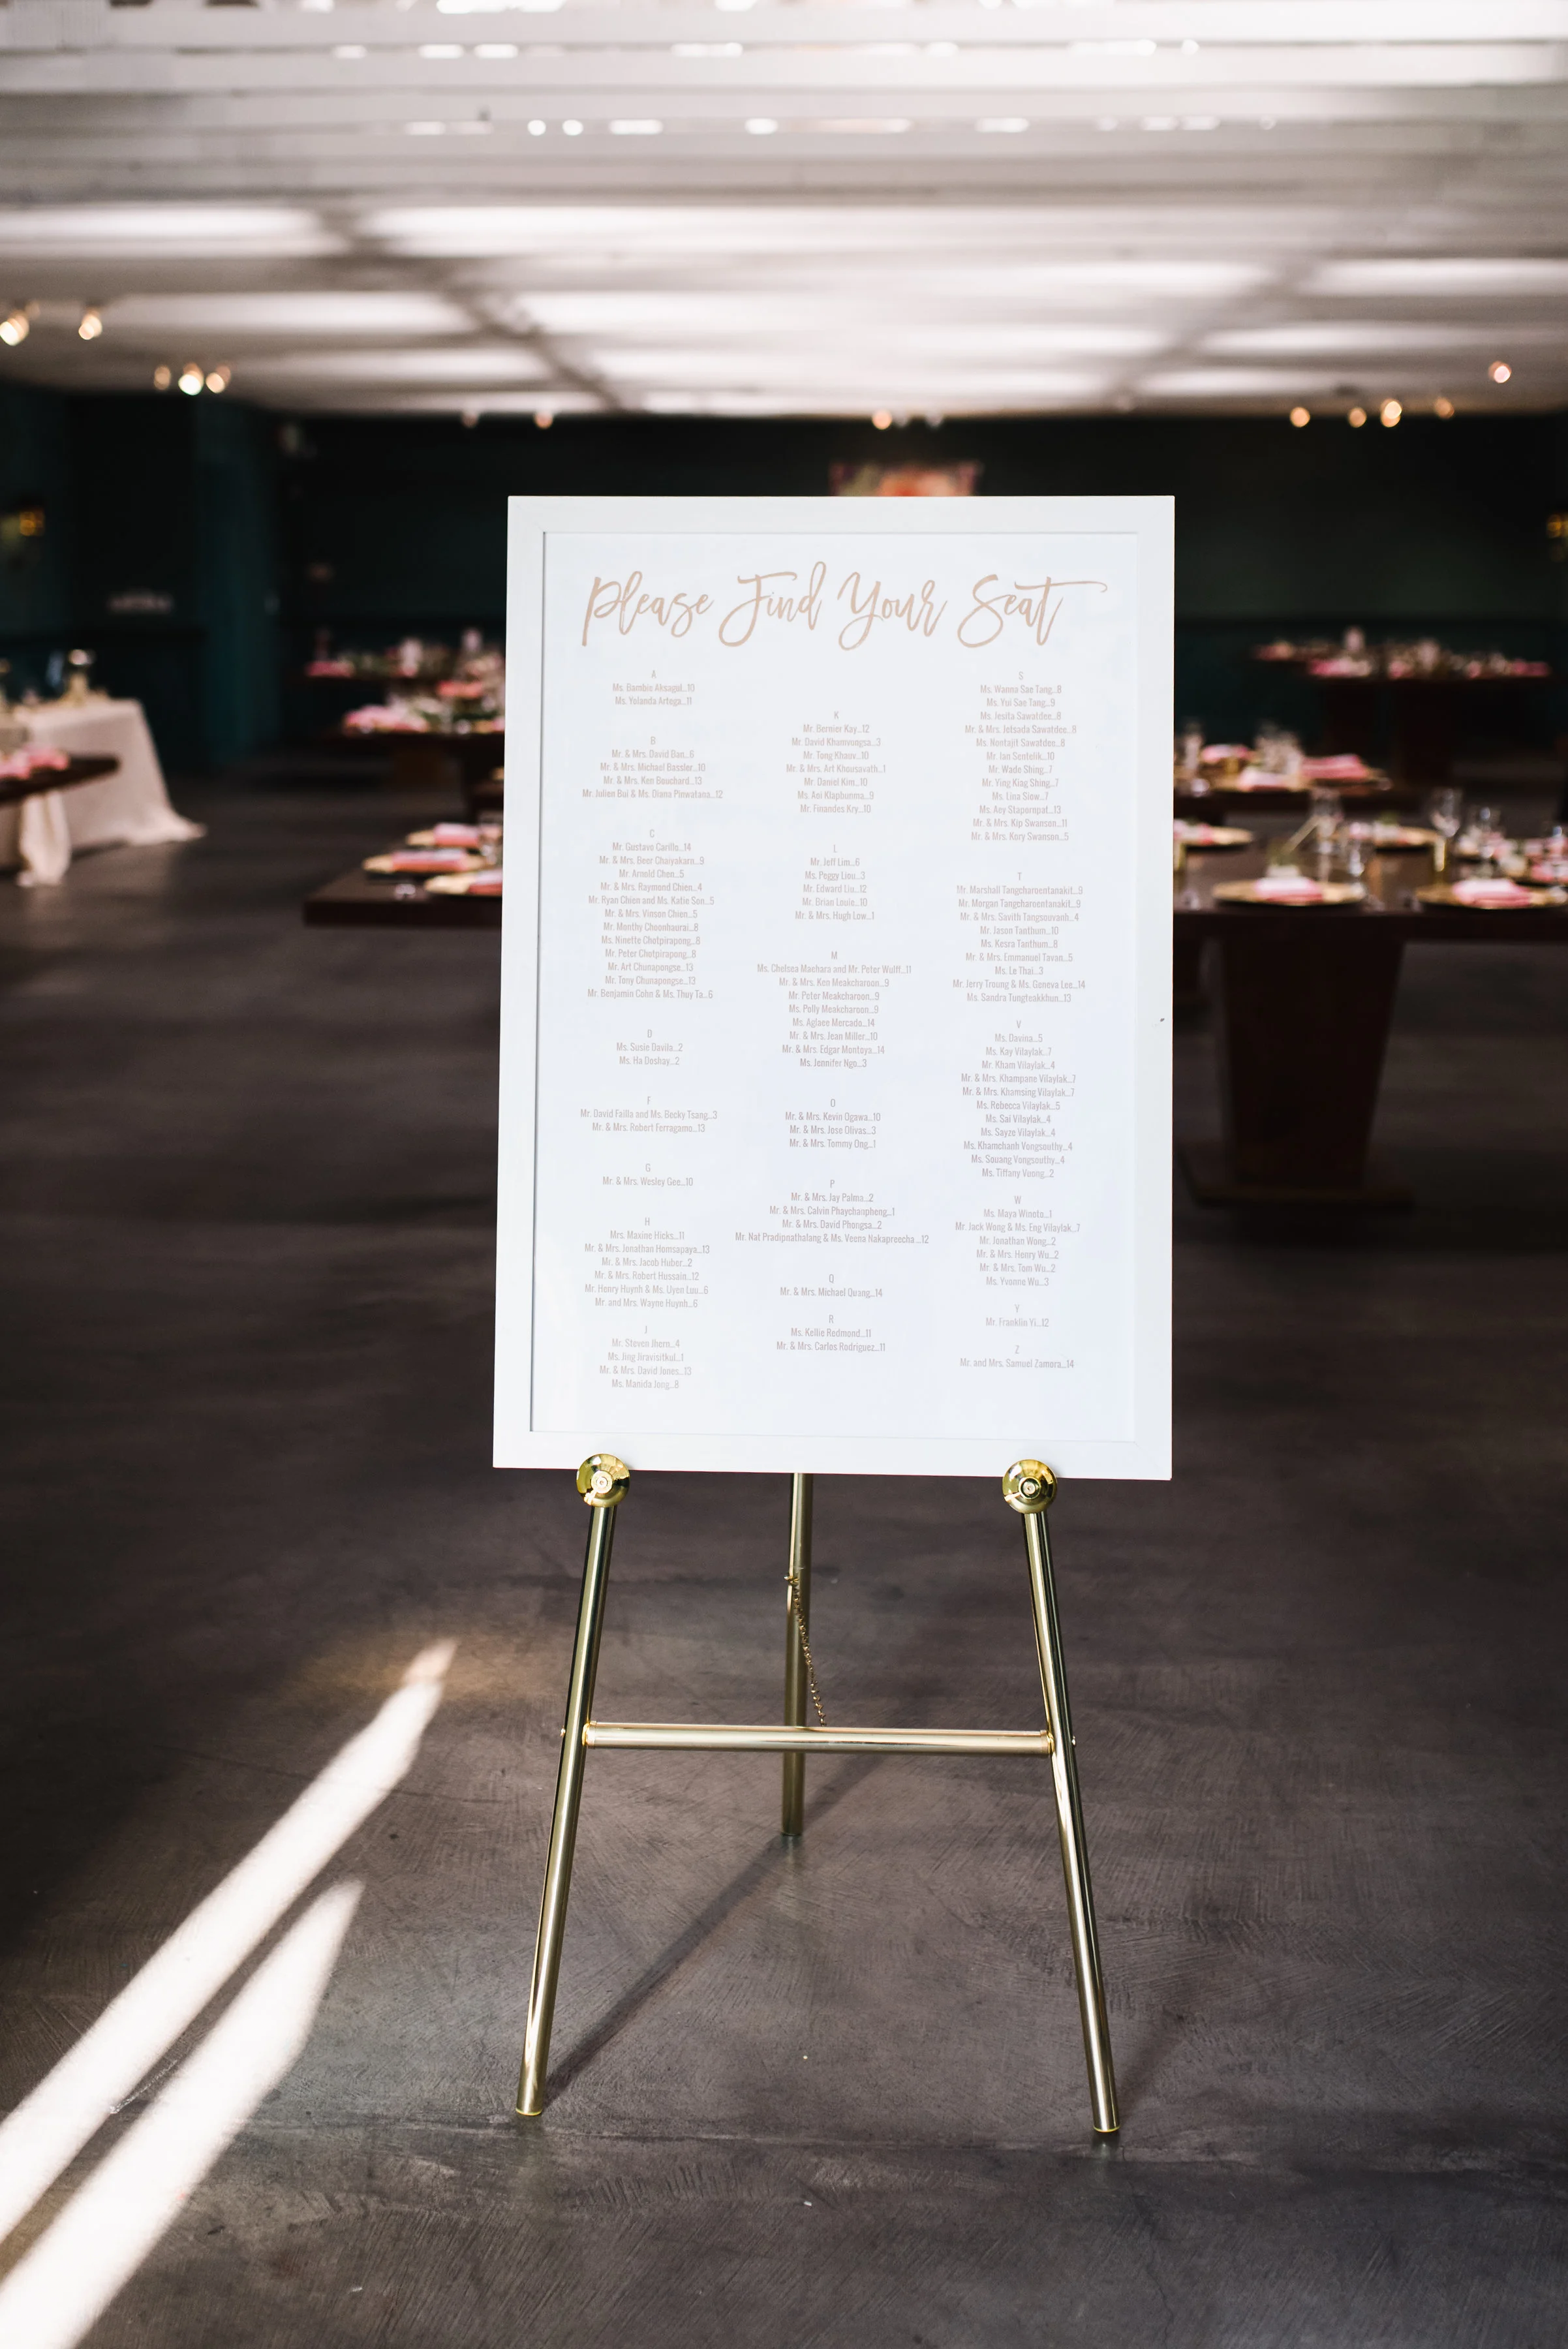 Please Find Your Seat
A
Ms. Bambie Aksagul...10
Ms. Yolanda Artega...11
B
Mr. & Mrs. David Ban...6
Mr. & Mrs. Michael Bassler...10
Mr. & Mrs. Ken Bouchard...13
Mr. Julien Bui & Ms. Diana Pinwatana...12
C
Mr. Gustavo Carillo...14
Mr. & Mrs. Beer Chaiyakarn...9
Mr. Arnold Chen...5
Mr. & Mrs. Raymond Chien...4
Mr. Ryan Chien and Ms. Katie Son...5
Mr. & Mrs. Vinson Chien...5
Mr. Monthy Choonhaurai...8
Ms. Ninette Chotpirapong...8
Mr. Peter Chotpirapong...8
Mr. Art Chunapongse...13
Mr. Tony Chunapongse...13
Mr. Benjamin Cohn & Ms. Thuy Ta...6
D
Ms. Susie Davila...2
Ms. Ha Doshay...2
F
Mr. David Failla and Ms. Becky Tsang...3
Mr. & Mrs. Robert Ferragamo...13
G
Mr. & Mrs. Wesley Gee...10
H
Mrs. Maxine Hicks...11
Mr. & Mrs. Jonathan Homsapaya...13
Mr. & Mrs. Jacob Huber...2
Mr. & Mrs. Robert Hussain...12
Mr. Henry Huynh & Ms. Uyen Luu...6
Mr. and Mrs. Wayne Huynh...6
J
Mr. Steven Jhern...4
Ms. Jing Jiravisitkul...1
Mr. & Mrs. David Jones...13
Ms. Manida Jong...8
K
Mr. Bernier Kay...12
Mr. David Khamvongsa...3
Mr. Tong Khouv...10
Mr. & Mrs. Art Khousavath...1
Mr. Daniel Kim...10
Ms. Ani Klapbunma...9
Mr. Finandes Kry...10
L
Mr. Jeff Lim...6
Ms. Peggy Liou...3
Mr. Edward Liu...12
Mr. Brian Louie...10
Mr. & Mrs. Hugh Low...1
M
Ms. Chelsea Maehara and Mr. Peter Wulff...11
Mr. & Mrs. Ken Meakcharoon...9
Mr. Peter Meakcharoon...9
Ms. Polly Meakcharoon...9
Ms. Aglaee Mercado...14
Mr. & Mrs. Jean Miller...10
Mr. & Mrs. Edgar Montoya...14
Ms. Jennifer Ngo...3
O
Mr. & Mrs. Kevin Ogawa...10
Mr. & Mrs. Jose Olivas...3
Mr. & Mrs. Tommy Ong...1
P
Mr. & Mrs. Jay Palma...2
Mr. & Mrs. Calvin Phaychanpheng...1
Mr. & Mrs. David Phongsa...2
Mr. Nat Pradipnathalang & Ms. Veena Nakapreecha ...12
Q
Mr. & Mrs. Michael Quang...14
R
Ms. Kellie Redmond...11
Mr. & Mrs. Carlos Rodriguez...11
S
Ms. Wanna Sae Tang...8
Ms. Yui Sae Tang...9
Ms. Jesita Sawatdee...8
Mr. & Mrs. Jetsada Sawatdee...8
Ms. Nontajit Sawatdee...8
Mr. Ian Sentelik...10
Mr. Wade Shing...7
Mr. Ying King Shing...7
Ms. Lina Siew...7
Ms. Aey Stapornpat...13
Mr. & Mrs. Kip Swanson...11
Mr. & Mrs. Kory Swanson...5
T
Mr. Marshall Tangcharoentanakit...9
Mr. Morgan Tangcharoentanakit...9
Mr. & Mrs. Savith Tangsouvanh...4
Mr. Jason Tanthum...10
Ms. Kesra Tanthum...8
Mr. & Mrs. Emmanuel Tavan...5
Ms. Le Thai...3
Mr. Jerry Troung & Ms. Geneva Lee...14
Ms. Sandra Tungteakkhun...13
V
Ms. Davina...5
Ms. Kay Vilaylak...7
Mr. Kham Vilaylak...4
Mr. & Mrs. Khampane Vilaylak...7
Mr. & Mrs. Khamsing Vilaylak...7
Ms. Rebecca Vilaylak...5
Ms. Sai Vilaylak...4
Ms. Sayze Vilaylak...4
Ms. Khamchanh Vongsouthy...4
Ms. Souang Vongsouthy...4
Ms. Tiffany Voong...2
W
Ms. Maya Winoto...1
Mr. Jack Wong & Ms. Eng Vilaylak...7
Mr. Jonathan Wong...2
Mr. & Mrs. Henry Wu...2
Mr. & Mrs. Tom Wu...2
Ms. Yvonne Wu...3
Y
Mr. Franklin Yi...12
Z
Mr. and Mrs. Samuel Zamora...14